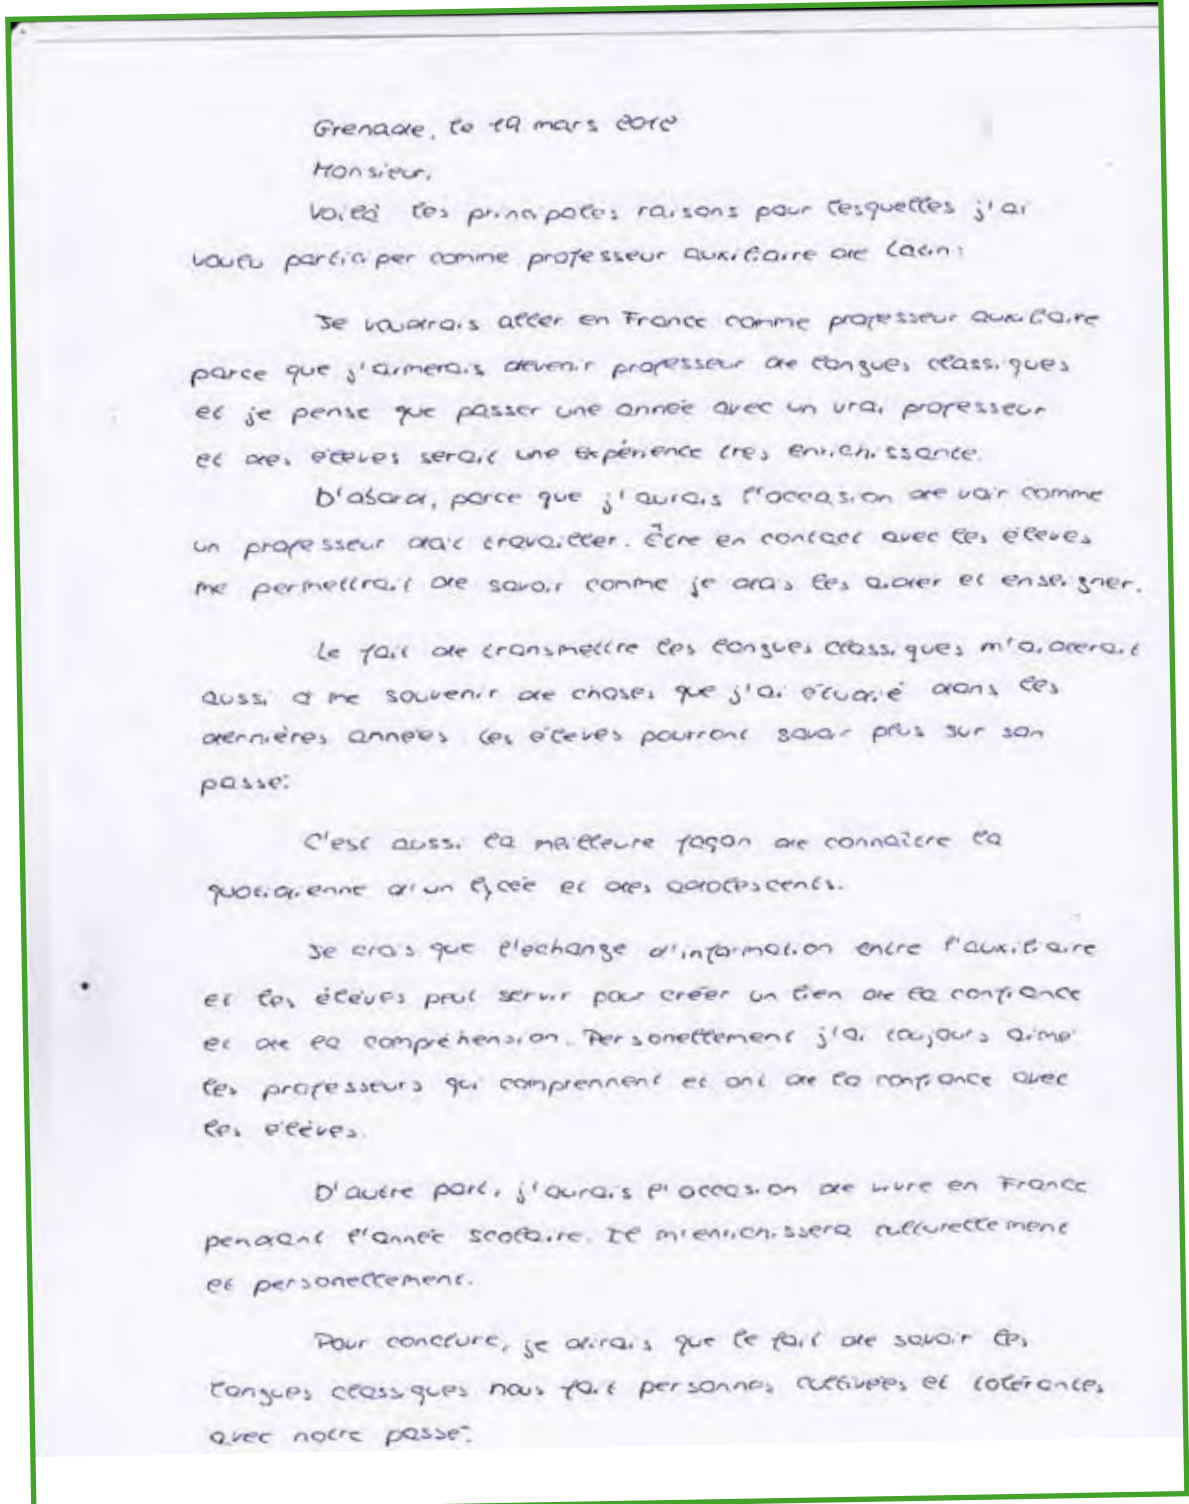 Grenade, le 19 mars 2012
Monsieur,
Voilà les principales raisons pour lesquelles j'ai
voulu participer comme professeur auxiliaire de latin:
Je voudrais aller en France comme professeur auxiliaire
parce que j'aimerais devenir professeur de langues classiques
et je pense que passer une année avec un vrai professeur
et des élèves serait une expérience très enrichissante.
D'abord, parce que j'aurais l'occasion de voir comme
un professeur doit travailler. Être en contact avec les élèves
me permettrait de savoir comme je dois les aider et enseigner.
Le fait de transmettre les langues classiques m'aiderait
aussi à me souvenir de choses que j'ai étudié dans les
dernières années les élèves pourront savoir plus sur son
passé.
C'est aussi la meilleure façon de connaître la
quotidienne d'un lycée et des adolescents.
Je crois que l'échange d'information entre l'auxiliaire
et les élèves peut servir pour créer un lien de la confiance
et de la compréhension. Personellement j'ai toujours aimé
les professeurs qui comprennent et ont de la confiance avec
les élèves.
D'autre part, j'aurais l'occasion de vivre en France
pendant l'année scolaire. Il m'enrichissera culturellement
et personellement.
Pour conclure, je dirais que le fait de savoir les
langues classiques nous fait personnes cultivées et tolérantes
avec notre passé.